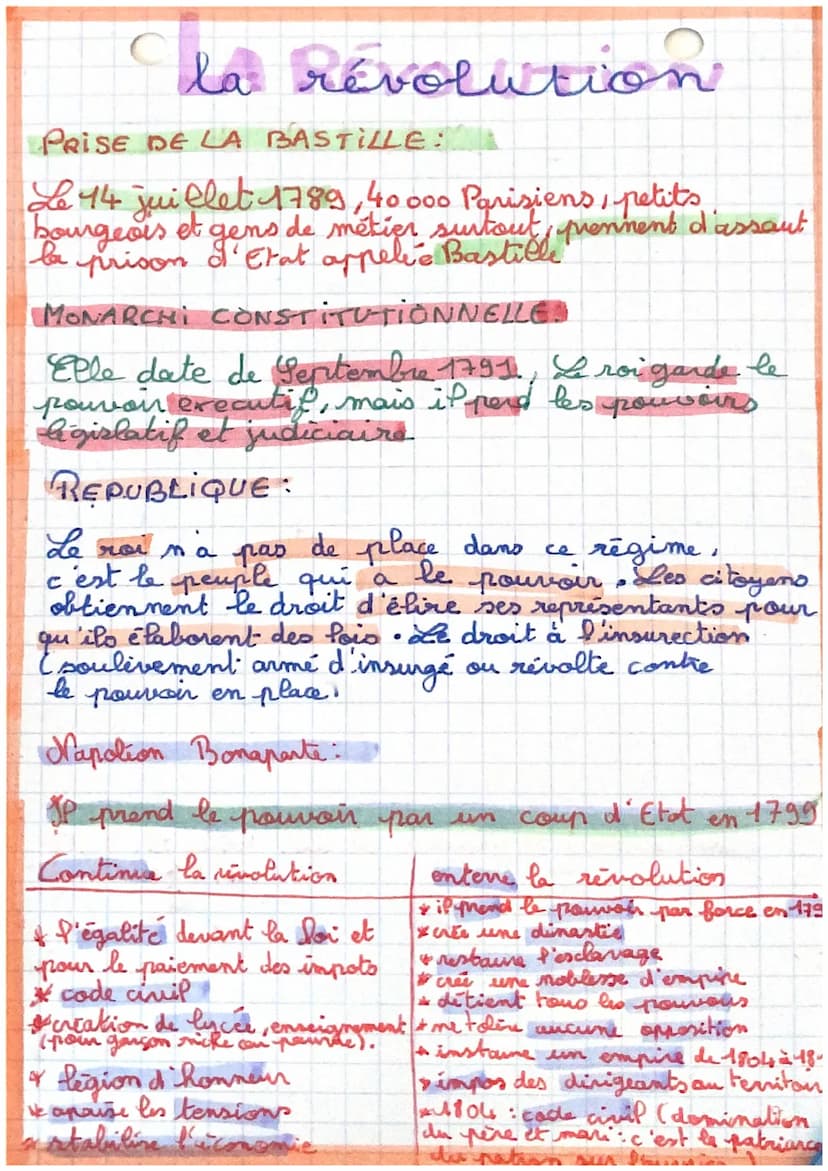 la révolution
PRISE DE LA BASTILLE:
Le 14 juillet 1789, 40 000 Parisiens, petits
bourgeois et gens de métier surtout, prennent d'assaut
la prison d'Etat appelée Bastille
MONARCHi CONSTiTUTiONNELLE:
Elle date de Septembre 1791, Le roi garde le
pouvoir executif, mais il perd les pouvoirs
législatif et judiciaire
REPUBLiQUE:
Le roi n'a pas de place dans ce régime,
c'est le peuple qui a le pouvoir. Les citoyens
obtiennent le droit d'élire ses représentants pour
qu'ils élaborent des lois. Le droit à l'insurection
(soulèvement armé d'insurgé ou révolte contre
le pouvoir en place.
Napoléon Bonaparte:
Il prend le pouvoir par un coup d'Etat en 1799
Continue la révolution
* l'égalité devant la loi et
pour le paiement des impots
* code civil
* création de lycée, enseignement
(pour garçon riche ou pauvre).
* légion d'honneur
* apaise les tensions
* stabilise l'économie
enterre la révolution
* il prend le pouvoir par force en 179
* crée une dinastie
* restaure l'esclavage
* crée une noblesse d'empire
* détient tous les pouvoirs
* ne tolère aucune opposition
* instaure un empire de 1804 à 18
* impos des dirigeants au territoir
* 1804: code civil (domination
du père et mari: c'est la patriarca
du patron sur l'ouvrier)